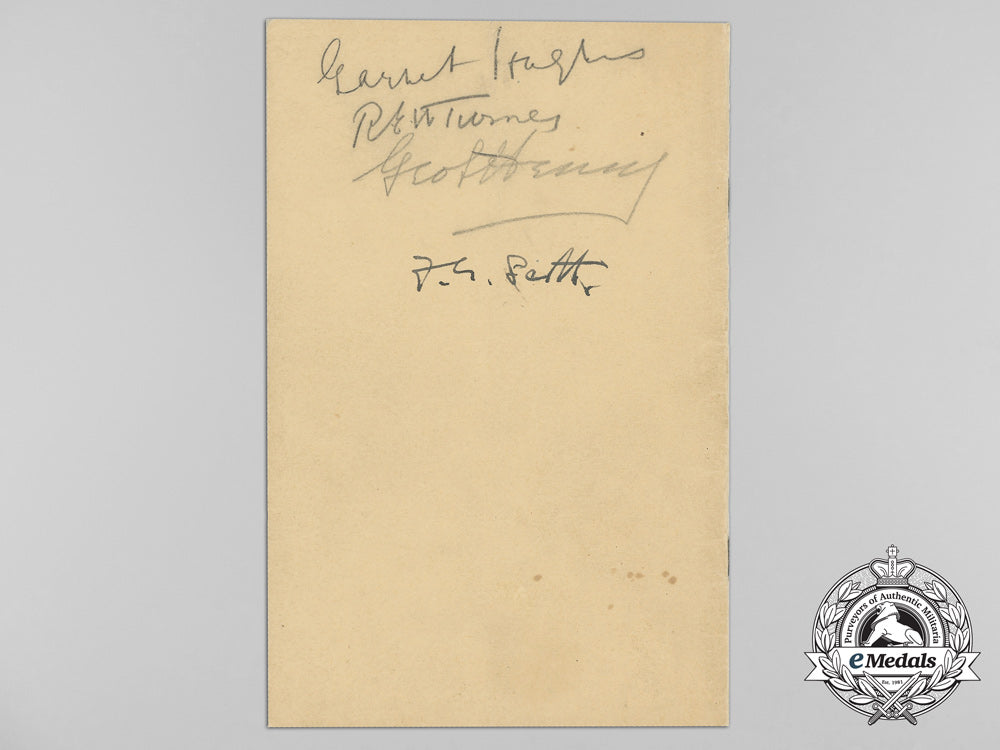 Garnet Hughes
R E W Turner
Geo
F. G. Scott.
Purveyors of Authentic Militaria
eMedals
Est. 1981